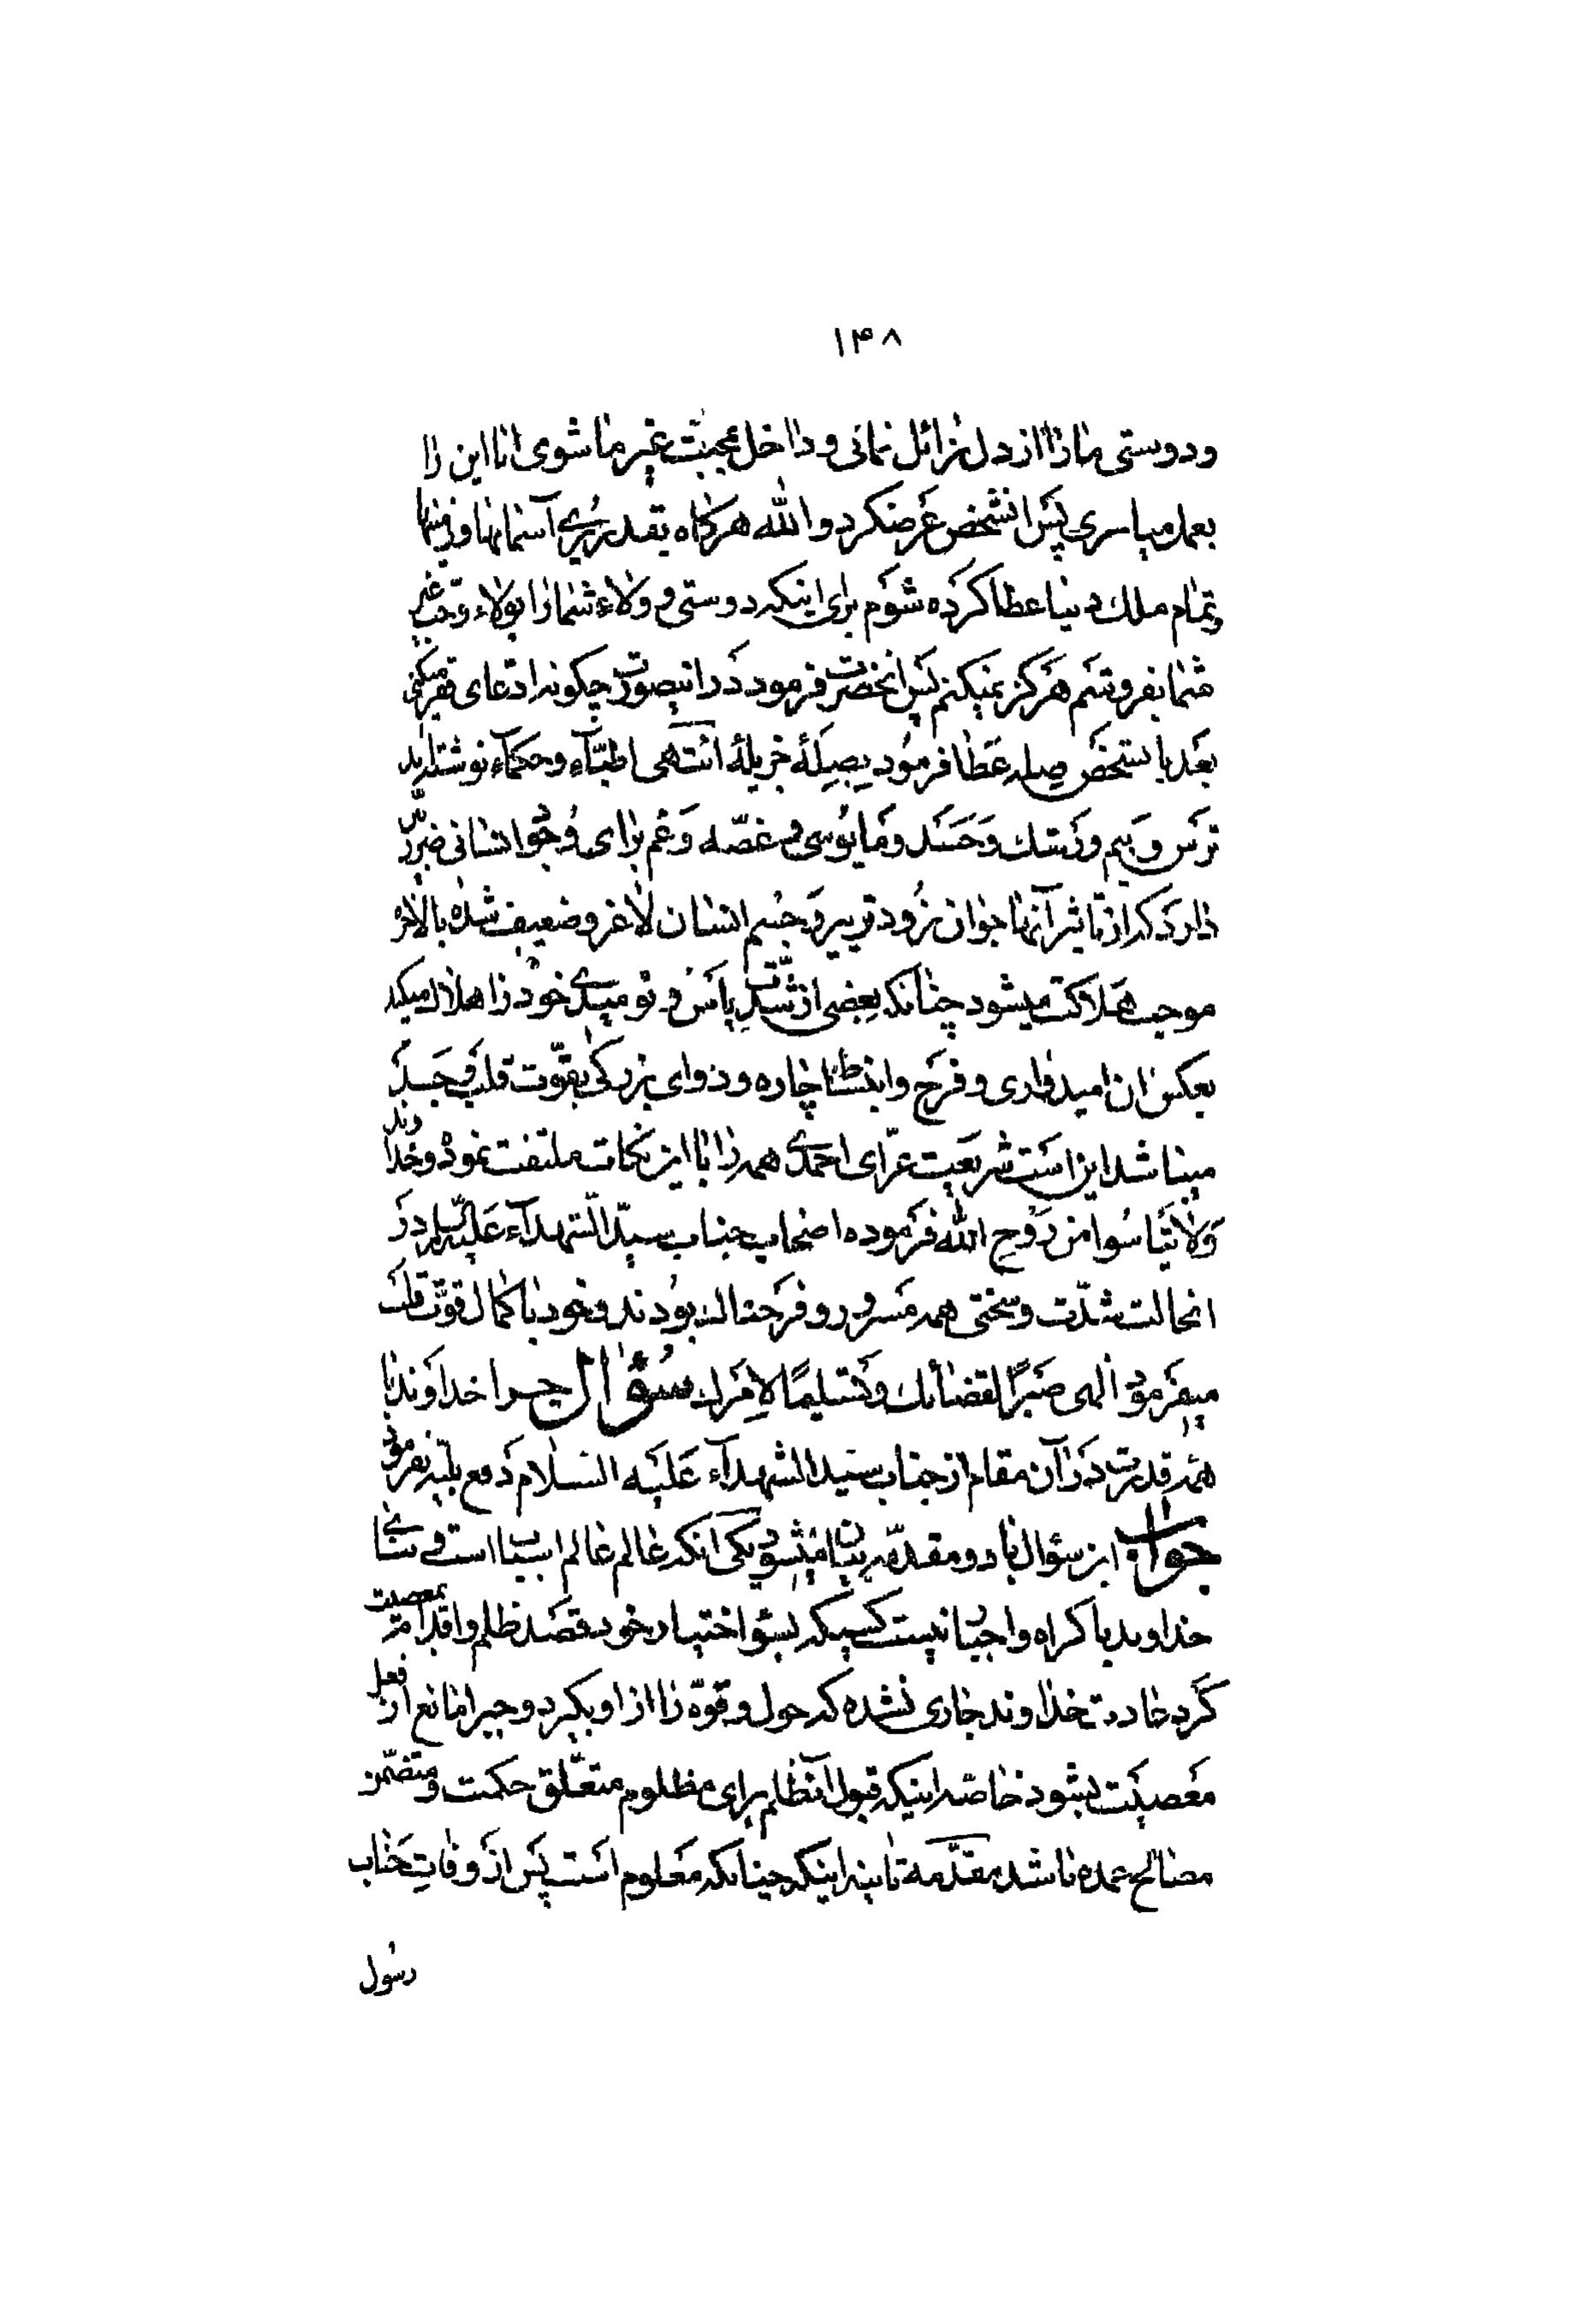 ۱۴۸
و دوستی ما را از دل زائل نمائی و داخل محبّت غیر ما شوی اما این را
بعمل میاسری پس انشخص عرضکرد والله هرگاه بقدر پُری آسمانها و زمینها
و تمام ملك دنیا عطا کرده شوم برای اینکه دوستی و ولاء شما را بولاء و حب غیر
شما بفروشم هرگز نمیکنم پس انحضرت فرمود در اینصورت چگونه ادعای فقر میکنی
بعد با نشخص صله عطا فرمود بصلهٔ جزیلهٔ انتهی اطبّآء و حکمآء نوشته‌اند
ترس و بیم و رشك و حسد و مایوسی و غصّه و غم برای وجود انسانی ضرر
دارد که از تاثیر آنها جوان زود تر پیر و جسم انسان لاغر و ضعیف شده بالاخره
موجب هلاکت میشود چنانکه بعضی از شدّت یاس و نومیدی خود را هلاك میکند
بعکس ان امیدواری و فرح و انبساط چاره و دوای بزرگی بقوّت قلب و جسد
میباشد این است شریعت غرّای احمدی همه را با این نکات ملتفت نموده و خداوند
و لا تیاسوا من روح الله فرموده اصحاب جناب سیّد الشّهدآء علیه السلام در
انحالت شدّت و سختی همه مسرور و فرحناك بودند و خود با کمال قوّت قلب
میفرمود الهی صبراً لقضائك و تسلیماً لامرك سؤال چرا خداوند با
همه قدرت در آن مقام از جناب سید الشهدآء علیه السلام دفع بلیّه نفرمود
جواب این سؤال با دو مقدّمه بیان میشود یکی آنکه عالم عالم اسباب است و بنای
خداوند با کراه و اجبار نیست کسیکه بسؤ اختیار خود قصد ظلم و اقدام بر معصیت
کرد عادت خداوند جاری نشده که حول و قوّه را از او بگیرد و جبرا مانع از فعل
معصیت بشود خاصّه اینیکه قبول آنظلم برای مظلوم متعلّق حکمت و متضمّن
مصالح عمده باشد مقدّمهٔ ثانیه اینکه چنانکه معلوم است پس از وفات جناب
رسول